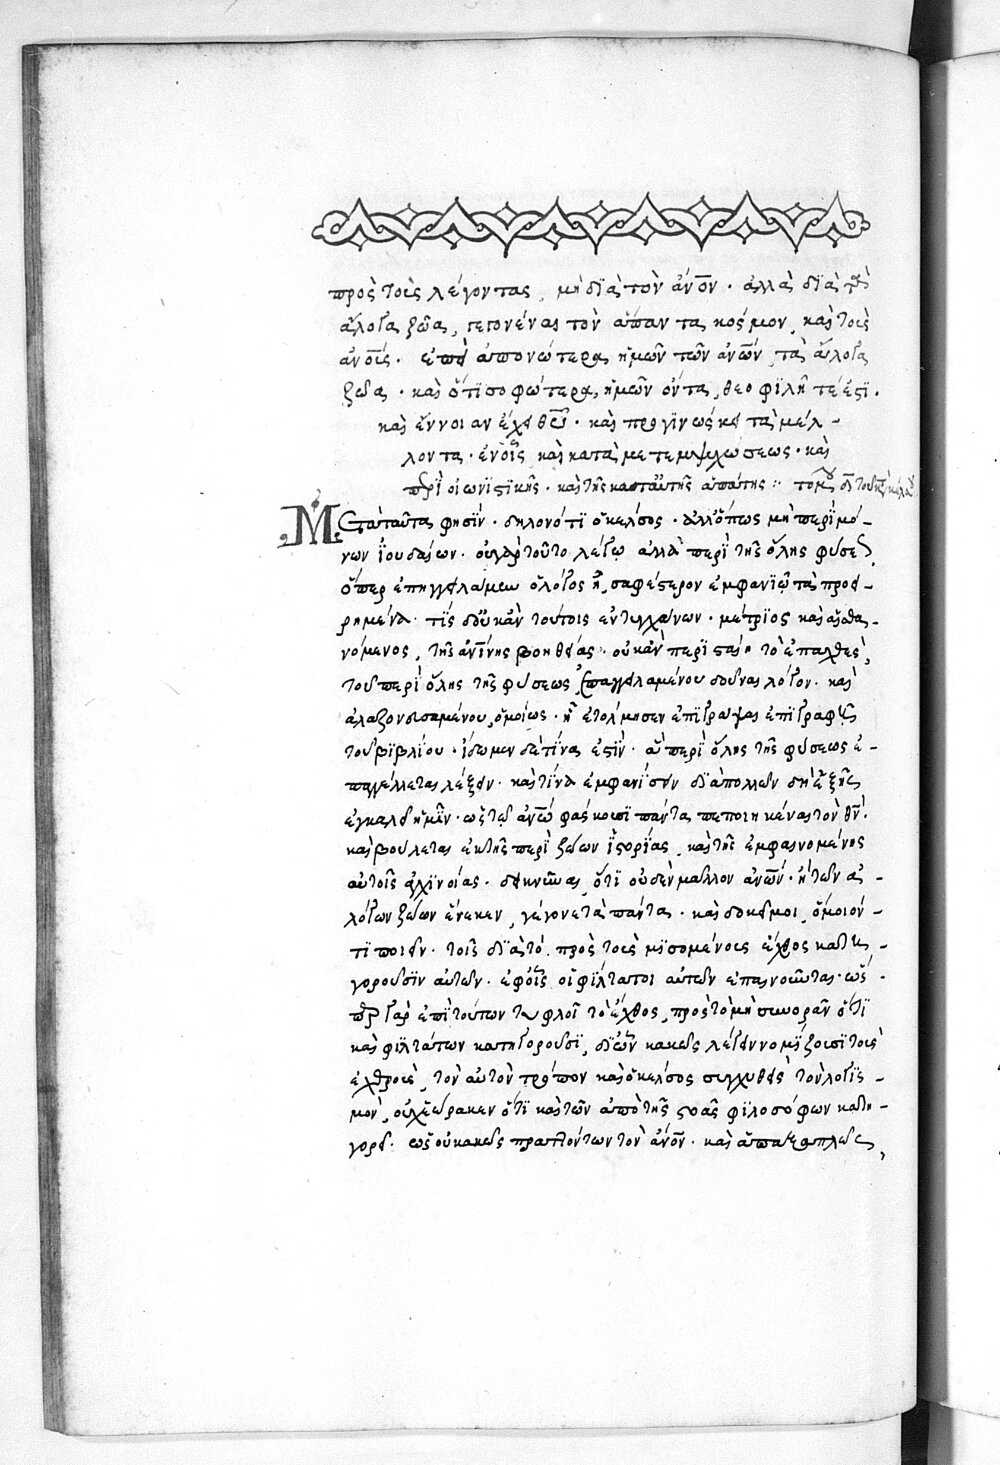 πρὸς τοὺς λέγοντας, μὴ διὰ τὸν ἄνον· ἀλλὰ διὰ τὰ
ἄλογα ζῶα, γεγονέναι τὸν ἅπαντα κόσμον, καὶ τοὺς
ἀνους· ἐπεὶ ἀπονώτερα ἡμῶν τῶν ἀνων, τὰ ἄλογα
ζῶα· καὶ ὅτι σοφώτερα ἡμῶν ὄντα, θεοφιλῆ τέ ἐστι.
καὶ ἔννοιαν ἔχει θυ· καὶ προγινώσκει τὰ μέλ-
λοντα· ἐν οἷς καὶ κατὰ μετεμψυχώσεως· καὶ
περὶ οἰωνιστικῆς· καὶ τῆς κατ' αὐτῆς ἀπάτης :
Μετὰ ταῦτα φησὶν· δηλονότι ὁ κέλσος· ἀλλ' ὅπως μὴ περὶ μό-
νων ἰουδαίων· οὐ γὰρ τοῦτο λέγω ἀλλὰ περὶ τῆς ὅλης φύσεως
ὅπερ ἐπηγγειλάμην ὁ λόγος ᾖ, σαφέστερον ἐμφανιῶ τὰ προει-
ρημένα· τίς δ' οὐκ ἂν τούτοις ἐντυγχάνων· μέτριος καὶ αἰσθα-
νόμενος, τῆς ἀνίνης βοηθείας· οὐκ ἂν περισταίη τὸ ἐπαχθὲς,
τοῦ περὶ ὅλης τῆς φύσεως ἐπαγγειλαμένου δοῦναι λόγον· καὶ
ἀλαζονευσαμένου, ὁμοίως· ᾗ ἐτόλμησεν ἐπιγράψαι ἐπιγραφῇ
τοῦ βιβλίου· ἴδωμεν δὲ τίνα ἐστὶν· ἃ περὶ ὅλης τῆς φύσεως ἐ-
παγγέλλεται λέξειν· καὶ τίνα ἐμφανίσειν διὰ πολλῶν δὴ ἑξῆς
ἐγκαλεῖ ἡμῖν· ὡς τῷ ἀνω φάσκουσι πάντα πεποιηκέναι τὸν θν·
καὶ βούλεται ἐκ τῆς περὶ ζώων ἱστορίας, καὶ τῆς ἐμφαινομένης
αὐτοῖς ἀγχινοίας· δεικνύναι, ὅτι οὐδὲν μᾶλλον ἀνων· ἢ τῶν ἀ-
λόγων ζώων ἕνεκεν, γέγονε τὰ πάντα· καὶ δοκεῖ μοι, ὅμοιόν
τι ποιεῖν· τοῖς διὰ τὸ πρὸς τοὺς μισουμένους ἔχθος κατη-
γοροῦσιν αὐτῶν· ἐφ' οἷς οἱ φίλτατοι αὐτῶν ἐπαινοῦνται· ὥσ-
περ γὰρ ἐπὶ τούτων τυφλοῖ τὸ ἔχθος, πρὸς τὸ μὴ συνορᾶν ὅτι
καὶ φιλτάτων κατηγοροῦσι, δι' ὧν κακῶς λέγειν νομίζουσι τοὺς
ἐχθροὺς, τὸν αὐτὸν τρόπον καὶ ὁ κέλσος συγχυθεὶς τὸν λογισ-
μὸν, οὐχ ἑώρακεν ὅτι καὶ τῶν ἀπὸ τῆς στοᾶς φιλοσόφων κατη-
γορεῖ· ὡς οὐ κακῶς προταττόντων τὸν ἄνον· καὶ ἁπαξαπλῶς